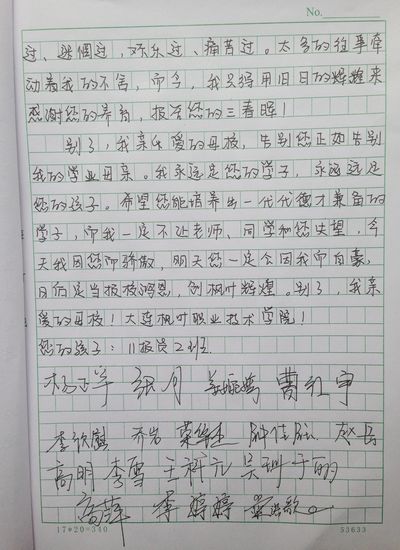 No.
过、迷惘过，欢乐过、痛苦过。太多的往事牵
动着我的不舍，而今，我只得用旧日的辉煌来
感谢您的养育，报答您的三春晖！
别了，我亲爱的母校，告别您正如告别
我的学业母亲。我永远是您的学子，永远是
您的孩子。希望您能培养出一代代德才兼备的
学子，而我一定不让老师、同学和您失望，今
天我因您而骄傲，明天您一定会因我而自豪，
日后定当报校鸿恩，创枫叶辉煌。别了，我亲
爱的母校！大连枫叶职业技术学院！
您的孩子：11报关2班
曹红宇
李欣麒 乔岩
高明 李雪 王祥元 于丽
李婷婷
17*20=340 53633